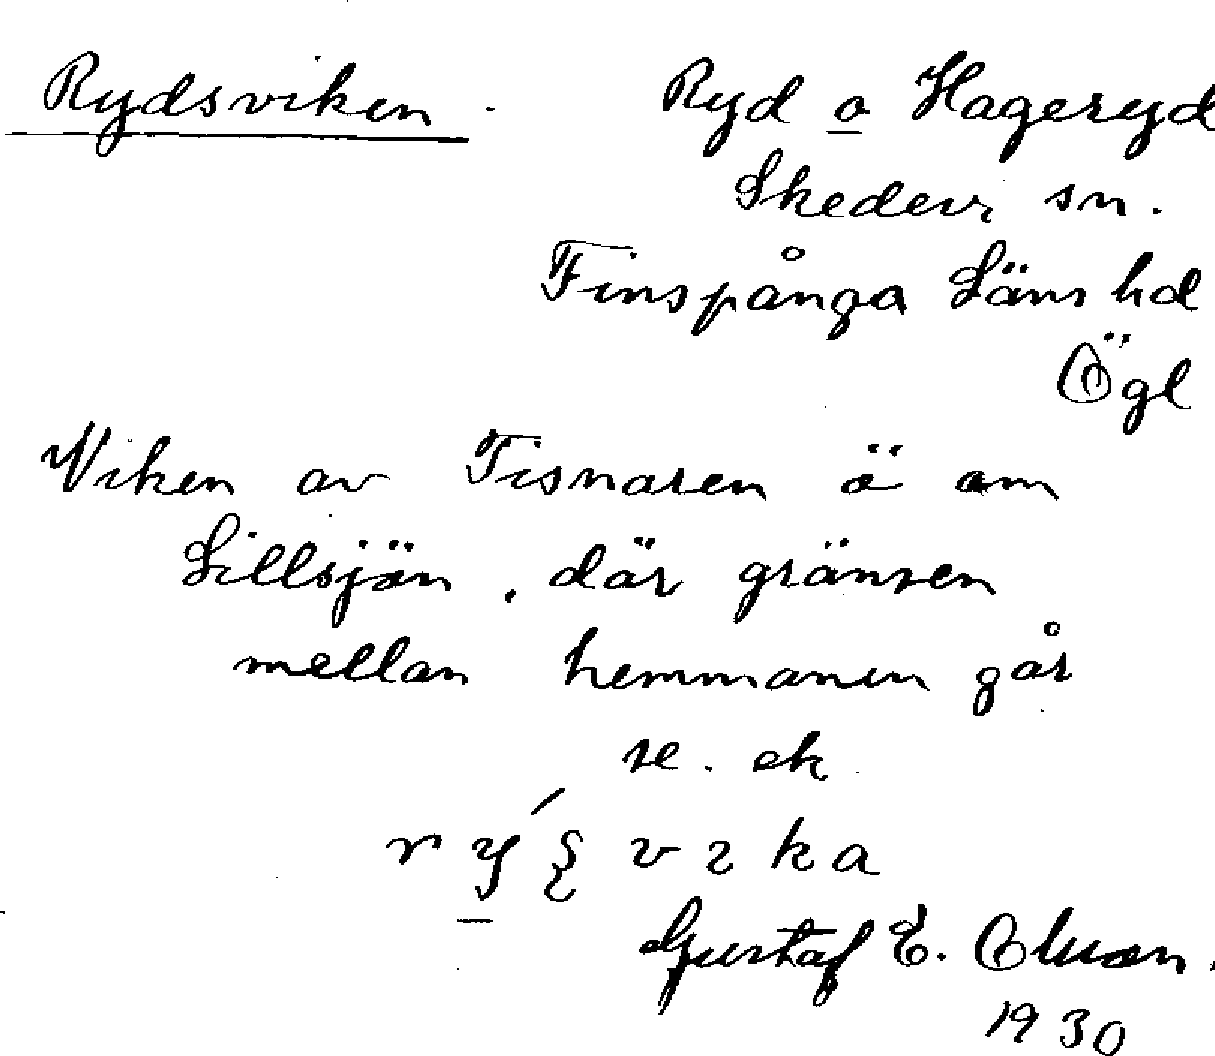 Rydsviken. Ryd o Hageryd
Skedevi sn.
Finspånga Läns hd
Ögl
Viken av Tisnaren ö om
Lillsjön, där gränsen
mellan hemmanen går
se. ek
Gustaf E. Olsson.
1930